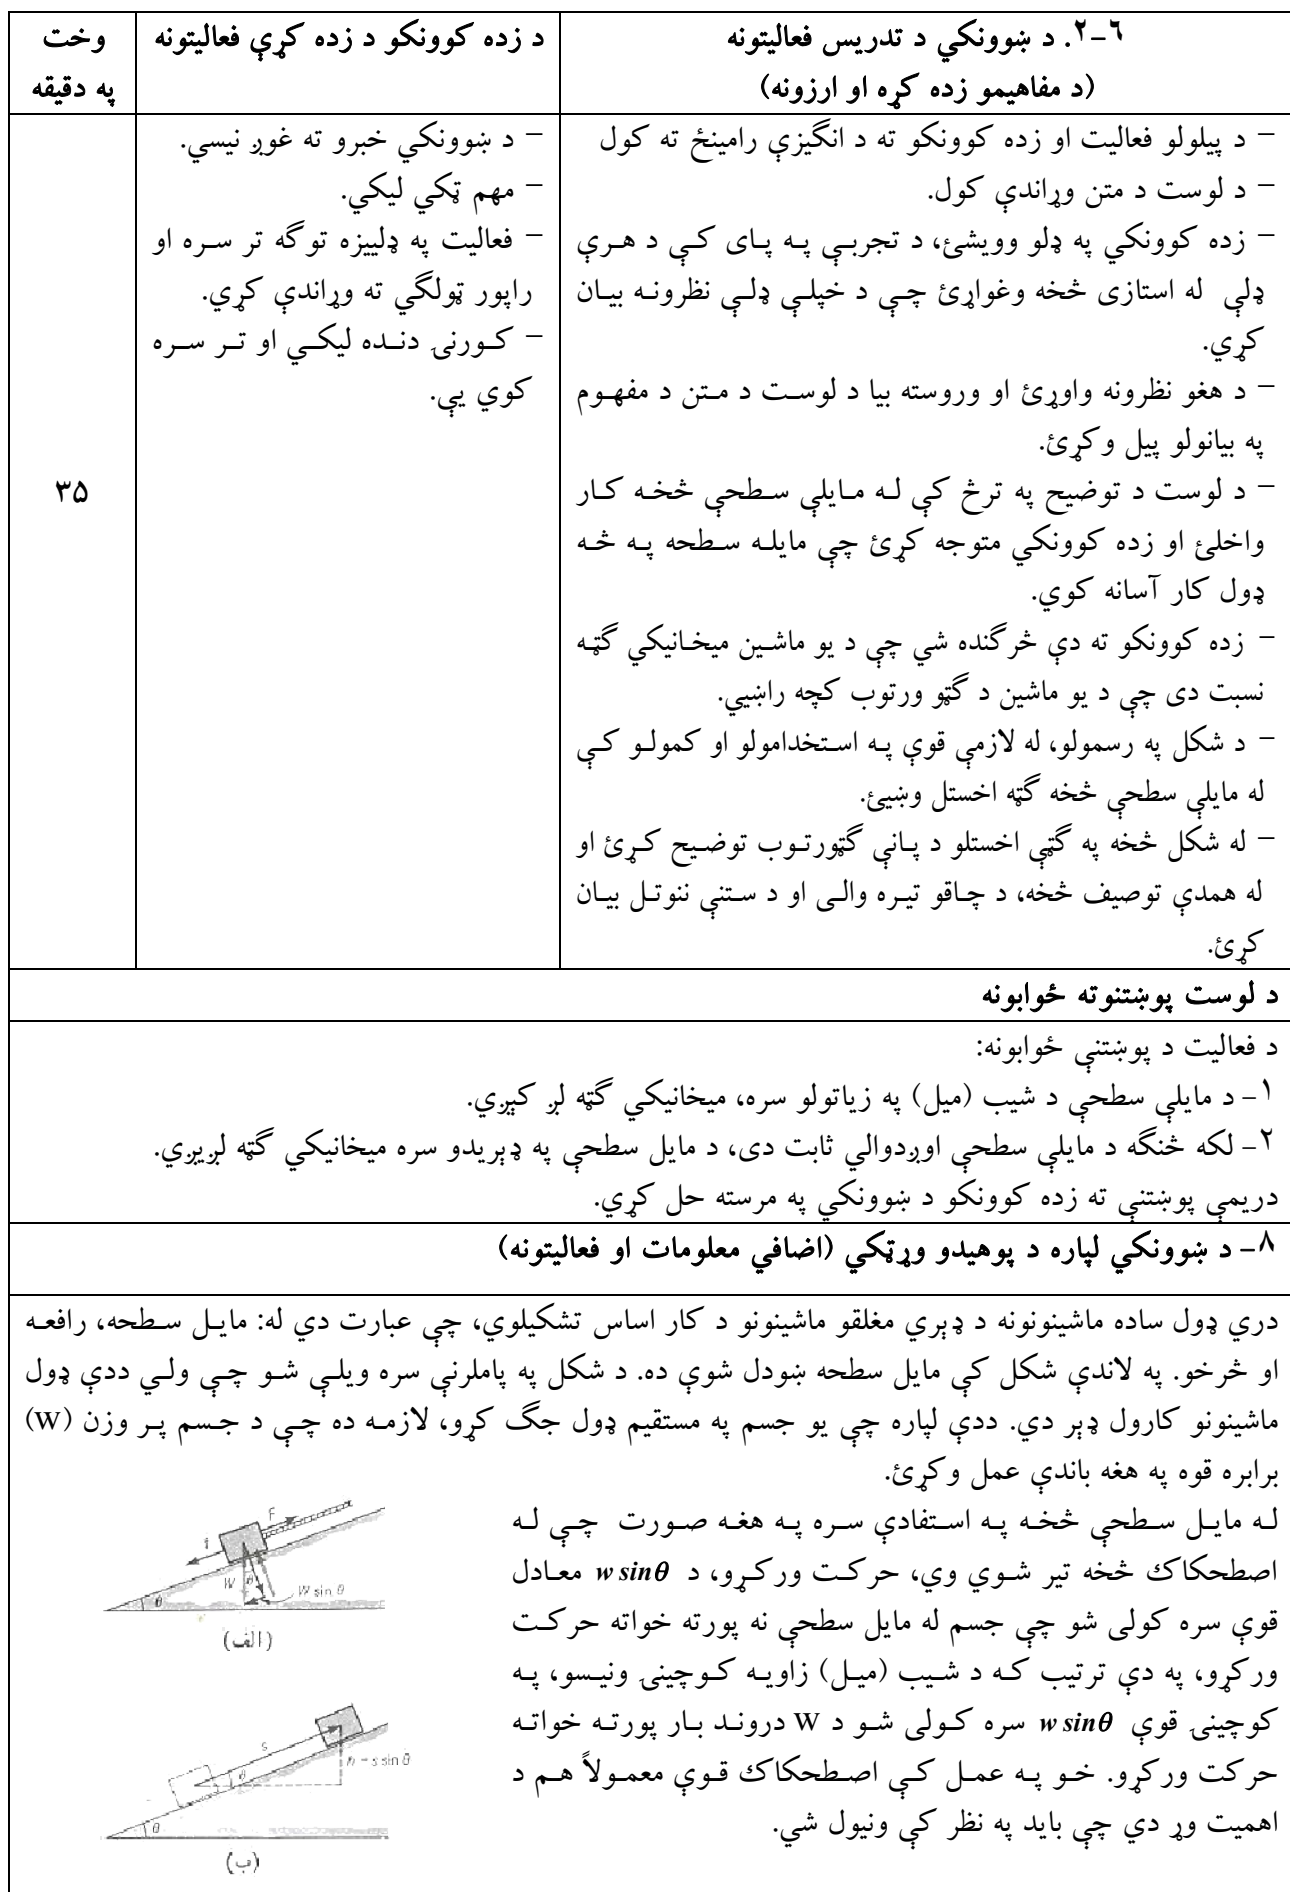 ۶-۲. د ښوونکي د تدریس فعالیتونه
(د مفاهیمو زده کړه او ارزونه)
د زده کوونکو د زده کړې فعالیتونه
وخت
په دقیقه
– د پیلولو فعالیت او زده کوونکو ته د انگیزې رامینځ ته کول
– د لوست د متن وړاندې کول.
– زده کوونکي په ډلو وویشئ، د تجربـې پـه پـای کـې د هـرې
ډلې له استازی څخه وغواړئ چـې د خپلـې ډلـې نظرونـه بیـان
کړي.
– د هغو نظرونه واورئ او وروسته بیا د لوسـت د مـتن د مفهـوم
په بیانولو پیل وکړئ.
– د لوست د توضیح په ترڅ کې لـه مـایلې سـطحې څخـه کـار
واخلئ او زده کوونکي متوجه کړئ چې مایلـه سـطحه پـه څـه
ډول کار آسانه کوي.
– زده کوونکو ته دې څرگنده شي چې د یو ماشـین میخـانیکي گټـه
نسبت دی چې د یو ماشین د گټو ورتوب کچه راښیي.
– د شکل په رسمولو، له لازمې قوې پـه اسـتخدامولو او کمولـو کـې
له مایلې سطحې څخه گټه اخستل وښیئ.
– له شکل څخه په گټې اخستلو د پـانې گټورتـوب توضـیح کـړئ او
له همدې توصیف څخه، د چـاقو تیـره والـی او د سـتنې ننوتـل بیـان
کړئ.
– د ښوونکي خبرو ته غوږ نیسي.
– مهم ټکي لیکي.
– فعالیت په ډلییزه توگه تر سـره او
راپور ټولگي ته وړاندې کړي.
– کـورنۍ دنـده لیکـي او تـر سـره
کوي یې.
۳۵
د لوست پوښتنوته ځوابونه
د فعالیت د پوښتنې ځوابونه:
۱- د مایلې سطحې د شیب (میل) په زیاتولو سره، میخانیکي گټه لږ کېږي.
۲- لکه څنگه د مایلې سطحې اوږدوالي ثابت دی، د مایل سطحې په ډېریدو سره میخانیکي گټه لږیږي.
دریمې پوښتنې ته زده کوونکو د ښوونکي په مرسته حل کړي.
۸- د ښوونکي لپاره د پوهیدو وړټکي (اضافي معلومات او فعالیتونه)
درې ډول ساده ماشینونونه د ډېرې مغلقو ماشینونو د کار اساس تشکیلوي، چې عبارت دي له: مایـل سـطحه، رافعـه
او څرخو. په لاندې شکل کې مایل سطحه ښودل شوې ده. د شکل په پاملرنې سره ویلـې شـو چـې ولـې ددې ډول
ماشینونو کارول ډېر دي. ددې لپاره چې یو جسم په مستقیم ډول جگ کړو، لازمـه ده چـې د جـسم پـر وزن (W)
برابره قوه په هغه باندې عمل وکړئ.
لـه مایـل سـطحې څخـه پـه اسـتفادې سـره پـه هغـه صـورت چـې لـه
اصطحکاك څخه تیر شـوي وي، حرکـت ورکـړو، د w sinθ معـادل
قوې سره کولی شو چې جسم له مایل سطحې نه پورته خواته حرکـت
ورکړو، په دې ترتیب کـه د شـیب (میـل) زاویـه کـوچینۍ ونیـسو، پـه
کوچینۍ قوې w sinθ سره کـولی شـو د W درونـد بـار پورتـه خواتـه
حرکت ورکړو. خـو پـه عمـل کـې اصـطحکاك قـوې معمـولاً هـم د
اهمیت وړ دي چې باید په نظر کې ونیول شي.
F
f
W
θ
W sin θ
θ
(الف)
s
θ
h = s sin θ
θ
(ب)